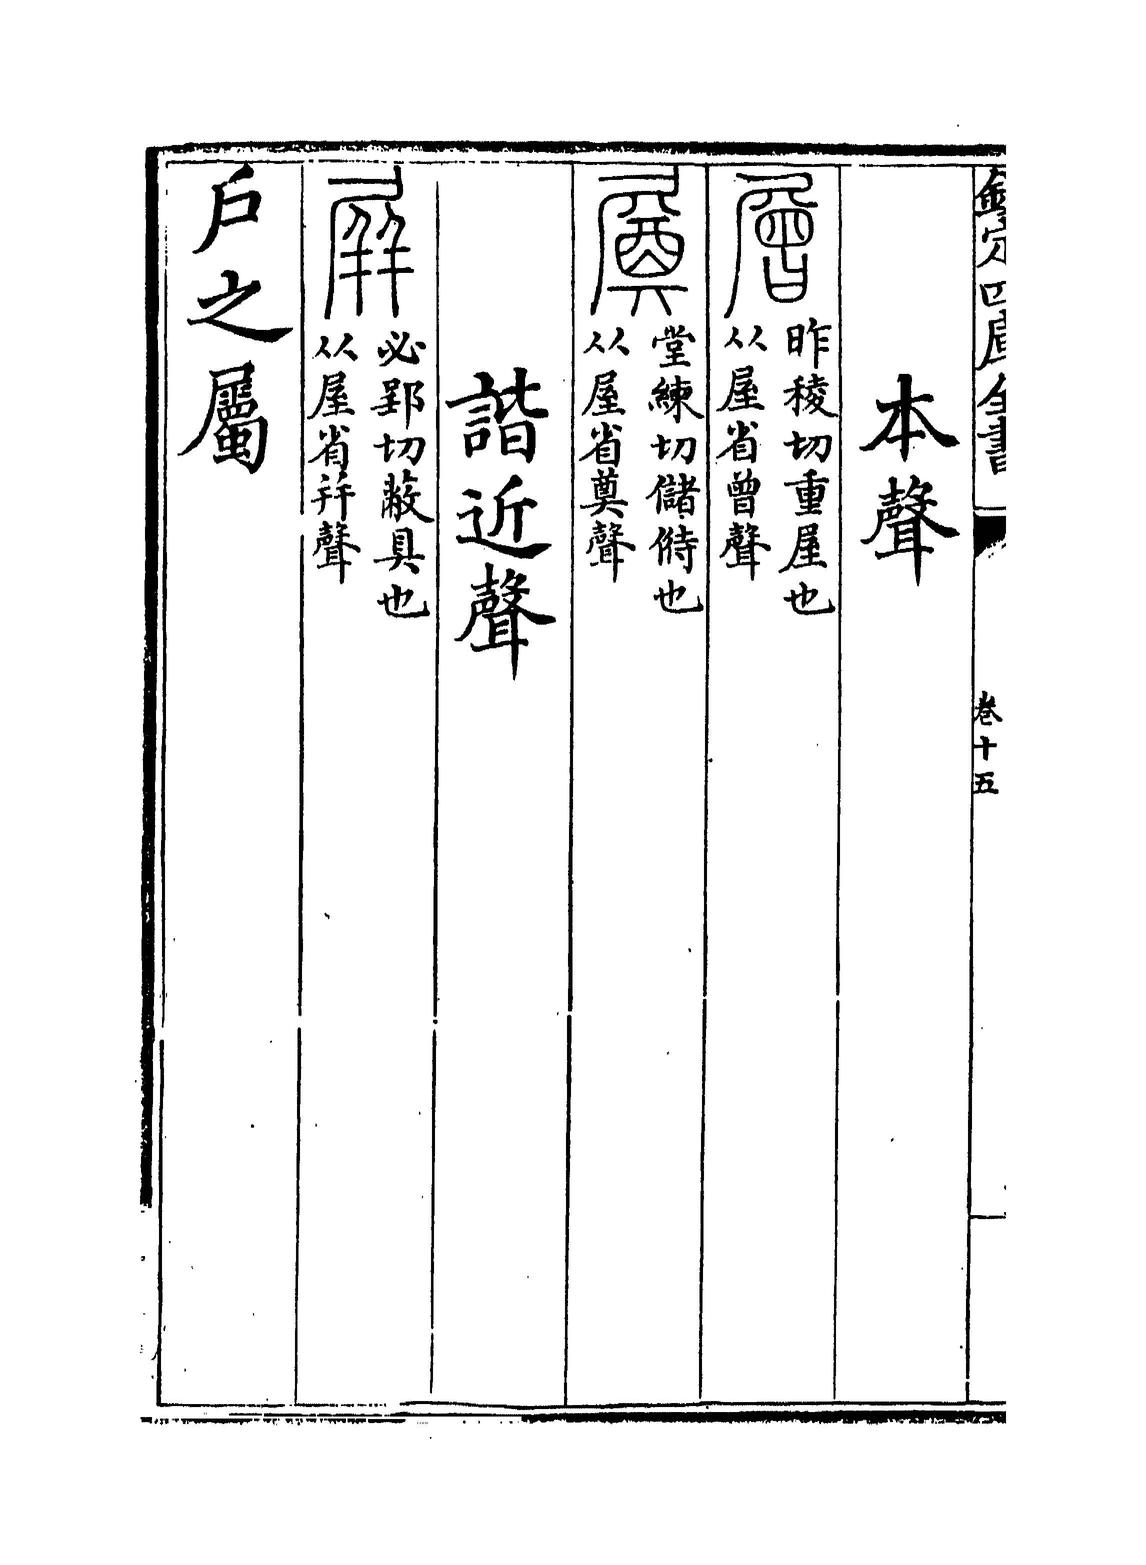 欽定四庫全書
卷十五
本聲
層
昨稜切重屋也
从屋省曾聲
堂練切儲偫也
从屋省奠聲
諧近聲
屛
必郢切蔽具也
从屋省幷聲
戶之屬